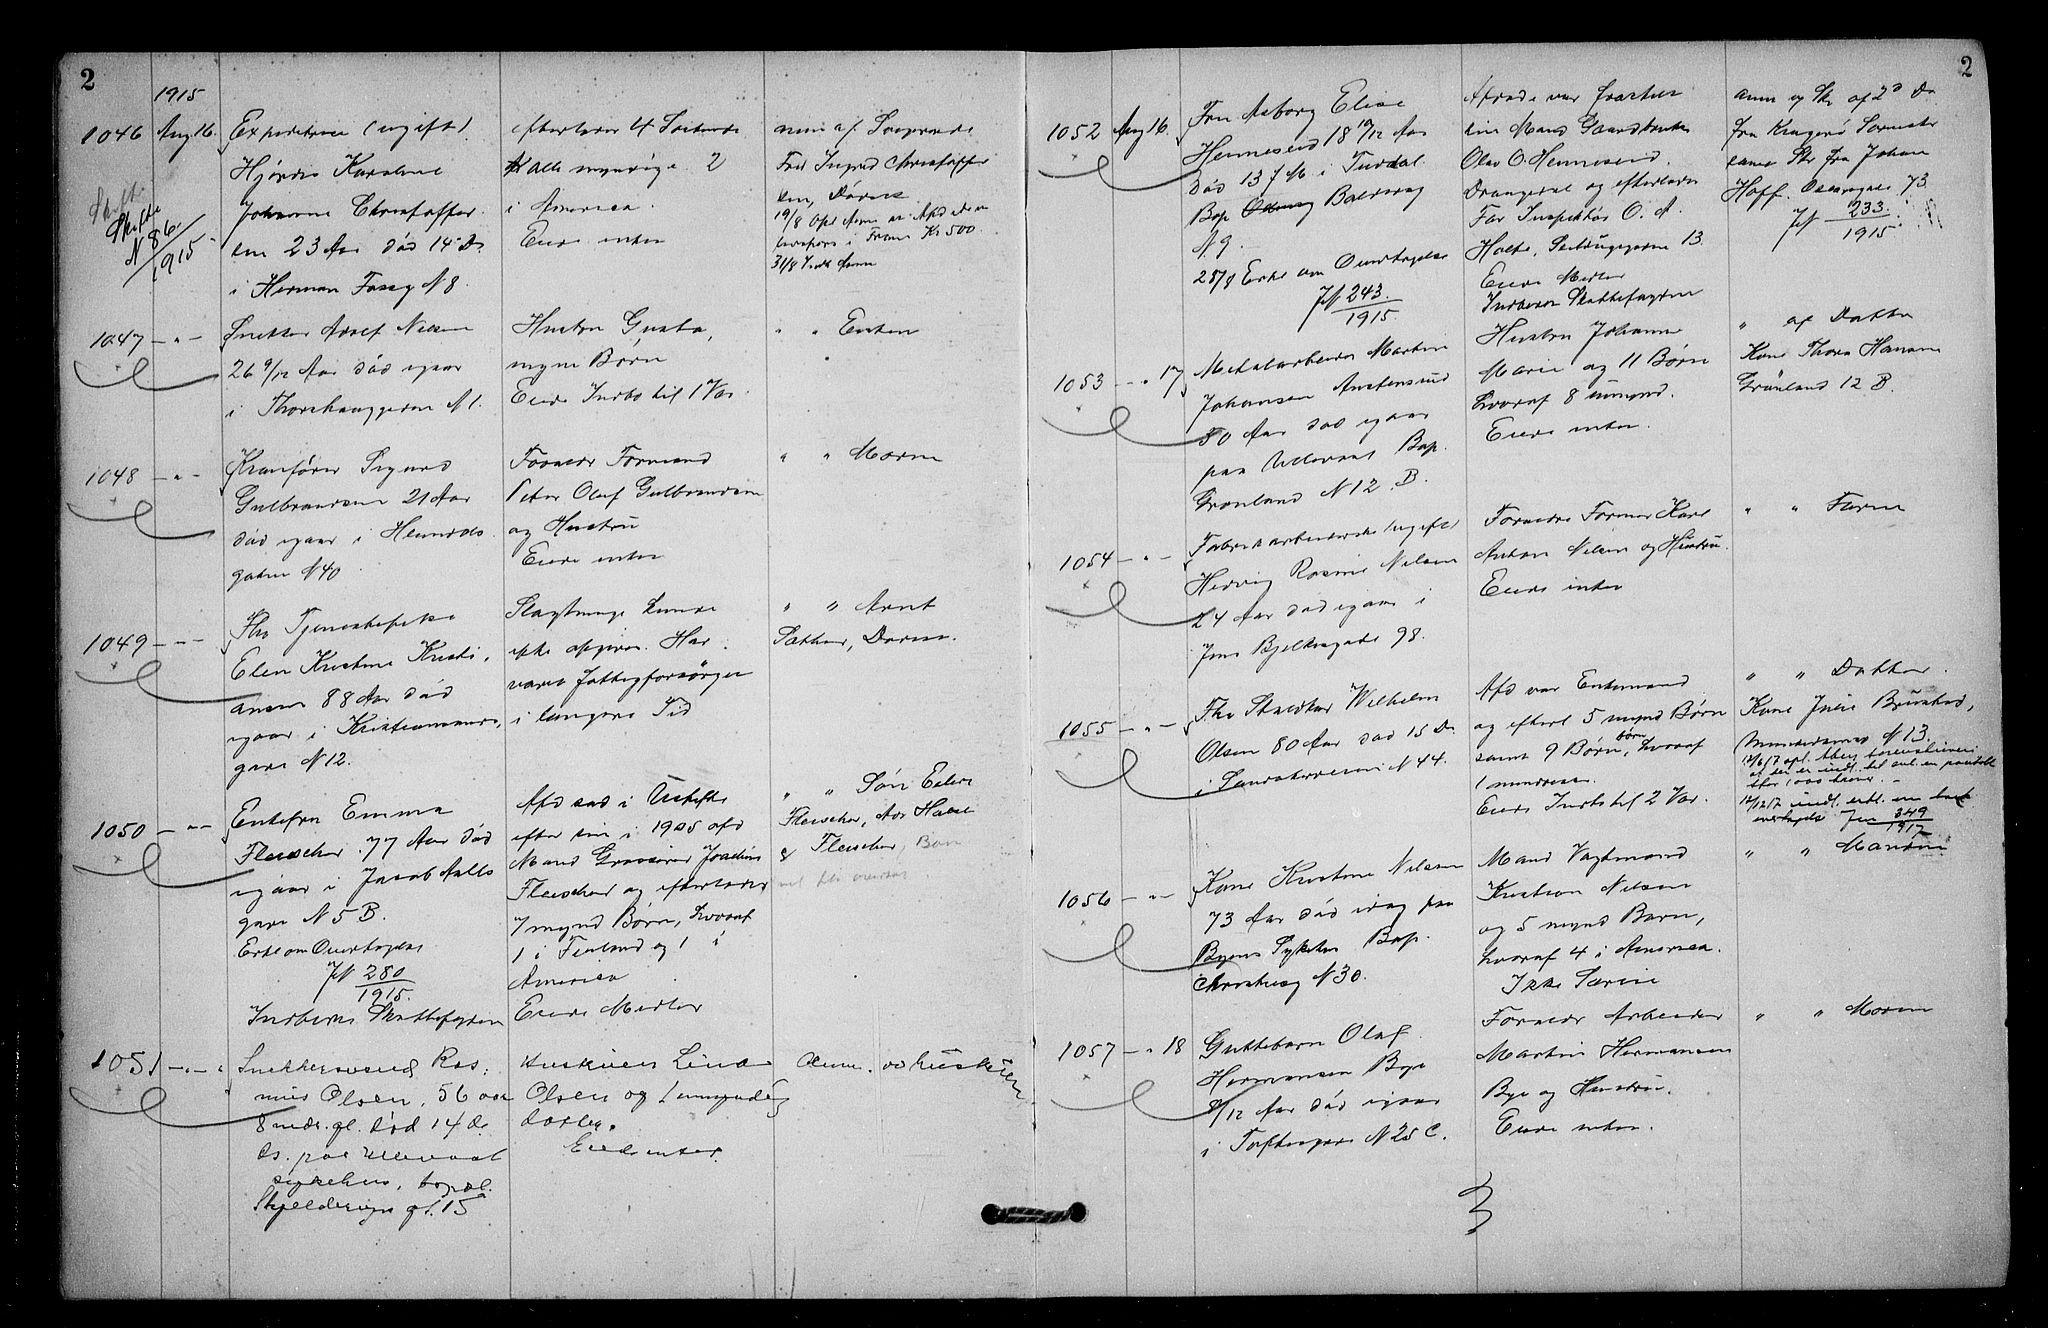 2
1915
1046 Aug 16. Expeditrice (ugift)
Hjørdis Karoline
Johanne Christoffer
sen 23 Aar død 14 Ds
i Herman Fossg N 8.
Skifte
N 86
1915
efterlader 4 Søskende
alle myndige 2
i America.
Eiede intet
anm af
Frk Ingrid Christoffer
sen,
19/8
i Fram Kr 500.
31/8 Anm
1047 — " — Snekker Adolf Nilsen
26 9/12 Aar død igaar
i Thorshauggaden N 1.
Hustru Gusta,
myn Børn
Eiede Indbo til 1 Vær
" " Enken
1048 — " — Kranfører Sigurd
Gulbrandsen 21 Aar
død igaar i Heimdals
gaden N 40
Forældr Formand
Peter Oluf Gulbrandsen
og Hustru
Eiede intet
" " Moren
1049 — " — Fhv Tjenestepike
Elen Kristine Kristi,
ansen 88 Aar død
igaar i Kristiansunds,
gade N 12.
Slægtninge kunde
ikke opgives. Har
været Fattigforsørget
i længere Tid
" " Arnt
Sæther,
1050 — " — Enkefru Emma
Fleischer 77 Aar død
igaar i Jacob Aalls
gade N 5 B.
Erkl om Overtagelse
JN 280
1915.
Indberet Skattefogden
Afd sad i Uskifte
efter sin i 1905 afd
Mand Grosserer Joachim
Fleischer og efterlader
7 mynd Børn, hvoraf
1 i Finland og 1 i
America
Eiede Midler
" " Søn Eilert
Fleischer,
& Fleischer,
1051 — " — Snekkersvend Ras,
mus Olsen, 56 aar
8 mdr. gl. død 14 de
ds. paa Ullevaal
sykehus, bopæl
Skjeldrups gt. 15
Hustruen Lina
Olsen og 1 umyndig
datter.
Eiede intet.
Anm. av hustruen
2
1052 Aug 16. Fru Aaborg Elise
Henneseid 18 10/12 Aar
Død 13 f M i Tørdal
Bop Balders g
N 9.
28/8 Erkl om Overtagelse
JN 243.
1915
Afdøde var frastin
sin Mand Gaardbruker
Olav O. Henneseid.
Drangedal og efterlader
Far Inspektør O. A.
Holte, 13.
Eiede Midler
Indberet Skattefogden
anm og Skr af 2 D
fra Kragerø Sorenskr
samt Skr fra Johan
Hoff. 73.
JN 233.
1915.
1053 — " 17 Metalarbeider Martin
Johansen Austensrud
50 Aar død igaar
paa Ullevaal Bop.
Grønland N 12. B.
Hustru Johanne
Marie og 11 Børn
hvoraf 8 umynd.
Eiede intet.
" af Datter
Kone Thora Hansen
Grønland 12 B.
1054 — " — Fabrikarbeiderske (ugift)
Hedvig Rosine Nilsen
24 Aar død igaar i
Jens Bjelkesgade 98.
Forældre Former Karl
Anton Nilsen og Hustru.
Eiede intet
" " Faren
1055 — " — Fhv Wilhelm
Olsen 80 Aar død 15 Ds
i Sandakerveien N 44.
Afd var Enkemand
og efterl 5 mynd Børn
samt 9 Børnebørn, hvoraf
1 mindreaa.
Eiede Indbo til 2 Vær.
" " Datter
Kone Julie Brunstad,
N 13.
349
1917
1056 — " — Kone Kristine Nilsen
73 Aar død idag paa
Byens Sykehus Bop.
N 30.
Mand Vagtmand
Kristian Nilsen
og 5 mynd Børn,
hvoraf 4 i America.
Ikke Særeie
" " Manden
1057 — " 18 Guttebarn Olaf
Hermansen Bye
8/12 Aar død igaar
i Toftesgade N 25 C.
Forældr Arbeider
Martin Hermansen
Bye og Hustru.
Eiede intet.
" " Moren